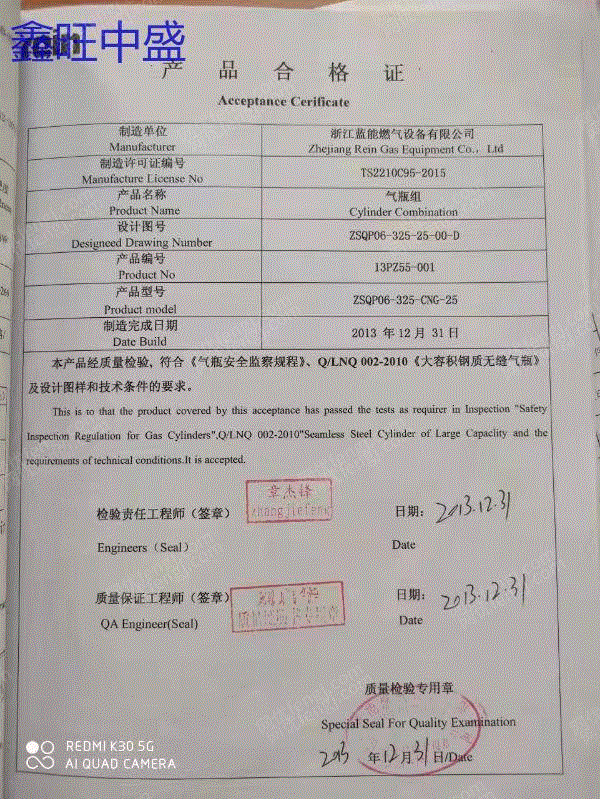 鑫旺中盛
产品合格证
Acceptance Cerificate
制造单位
Manufacturer
浙江蓝能燃气设备有限公司
Zhejiang Rein Gas Equipment Co., Ltd
制造许可证编号
Manufacture License No
TS2210C95-2015
产品名称
Product Name
气瓶组
Cylinder Combination
设计图号
Designeed Drawing Number
ZSQP06-325-25-00-D
产品编号
Product No
13PZ55-001
产品型号
Product model
ZSQP06-325-CNG-25
制造完成日期
Date Build
2013 年 12 月 31 日
本产品经质量检验，符合《气瓶安全监察规程》、Q/LNQ 002-2010《大容积钢质无缝气瓶》
及设计图样和技术条件的要求。
This is to that the product covered by this acceptance has passed the tests as requirer in Inspection "Safety
Inspection Regulation for Gas Cylinders",Q/LNQ 002-2010"Seamless Steel Cylinder of Large Capaclity and the
requirements of technical conditions.It is accepted.
检验责任工程师（签章）
章杰锋
zhangjiefeng
日期：2013.12.31
Engineers（Seal）
Date
质量保证工程师（签章）
日期：2013.12.31
QA Engineer(Seal)
Date
质量检验专用章
Special Seal For Quality Examination
2013 年 12 月 31 日/Date
REDMI K30 5G
AI QUAD CAMERA